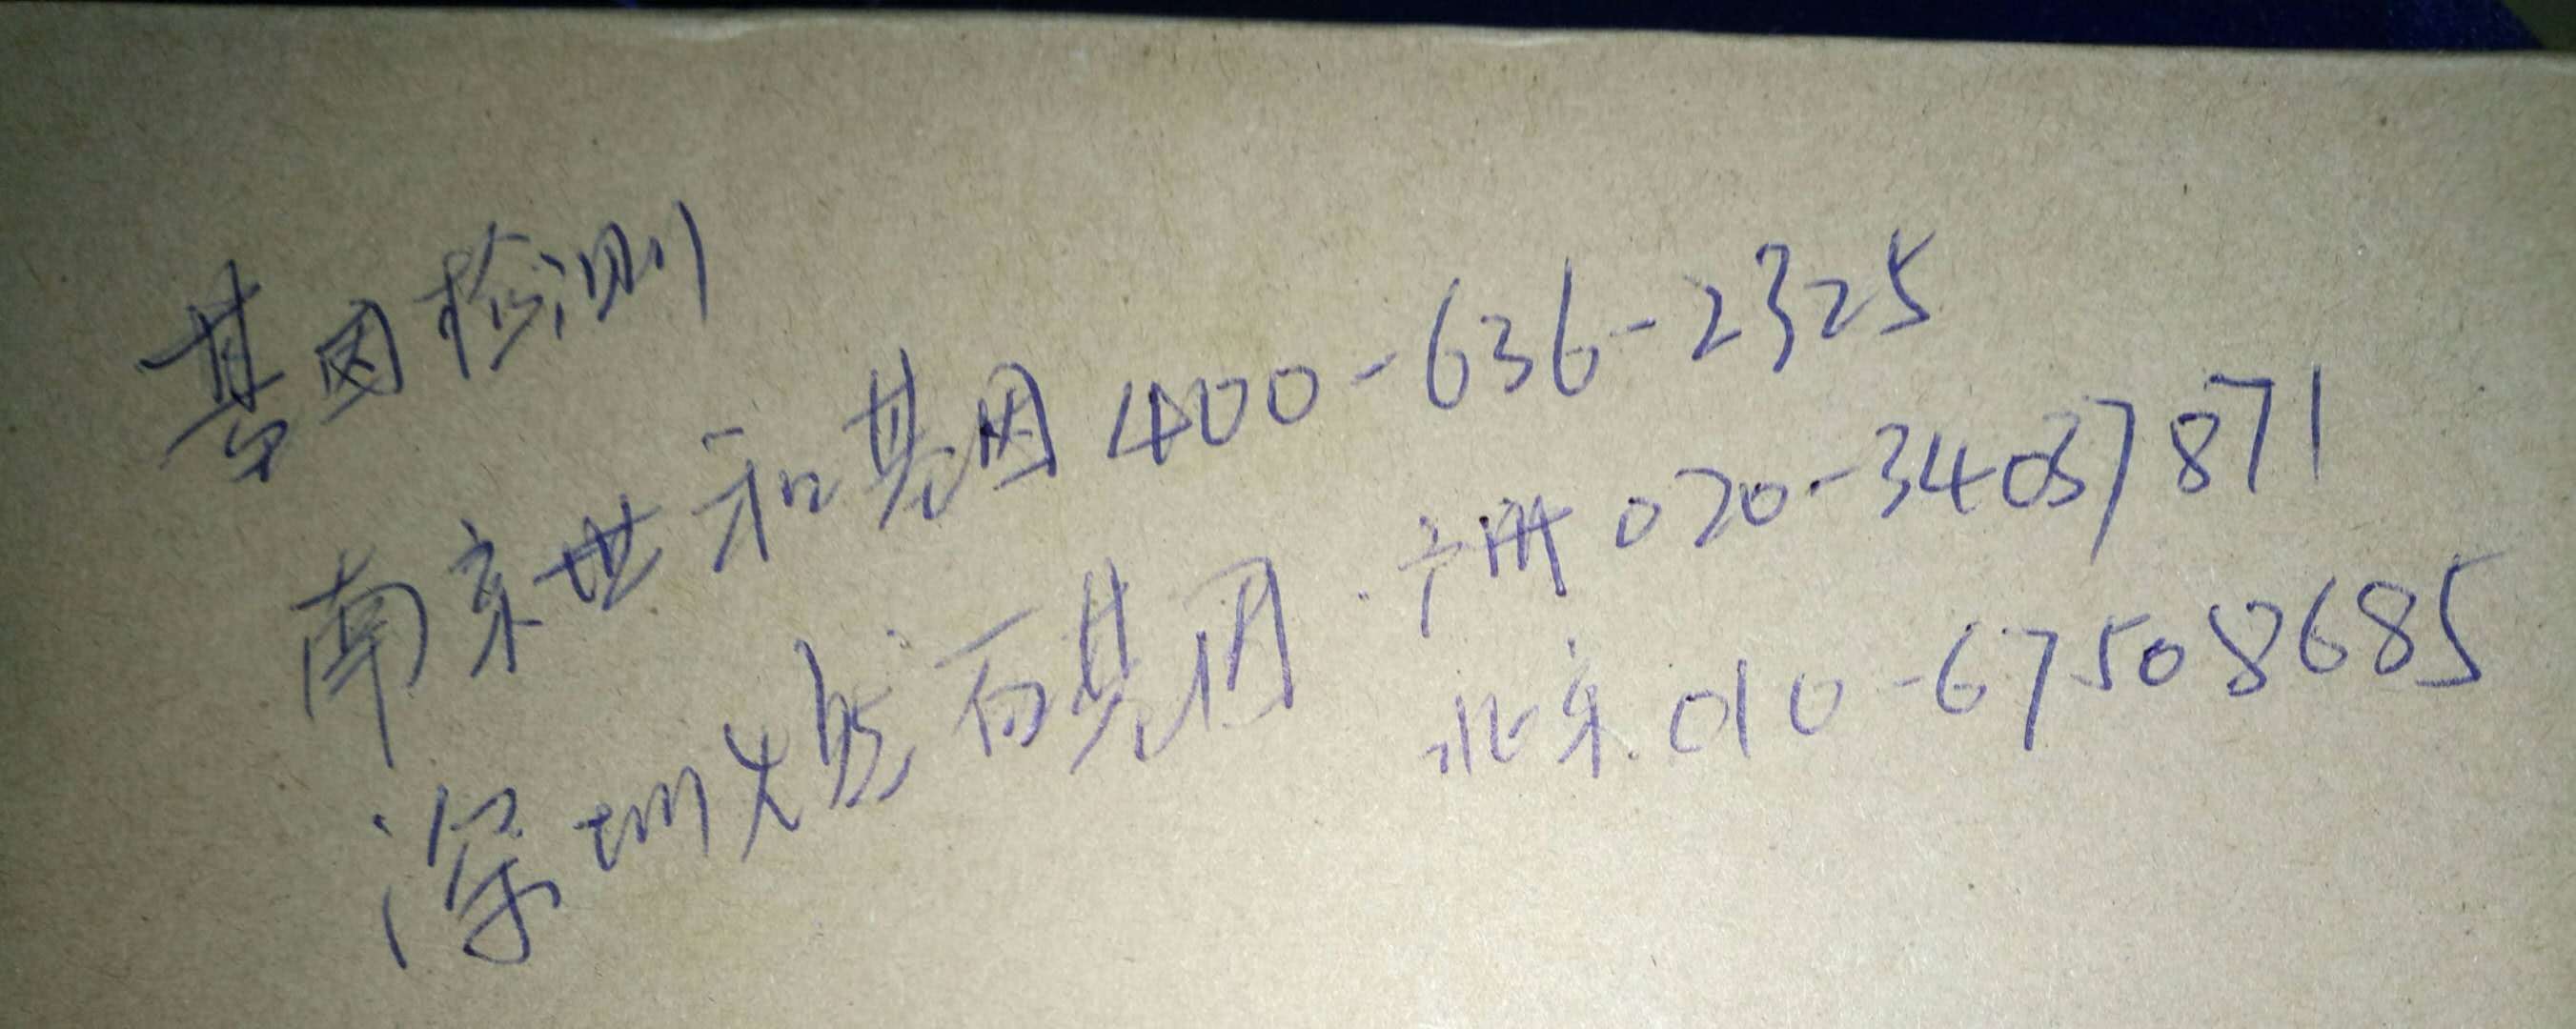 基因检测
南京世和基因 400-636-2325
深圳 百基因 广州 020-34037871
北京 010-67508685